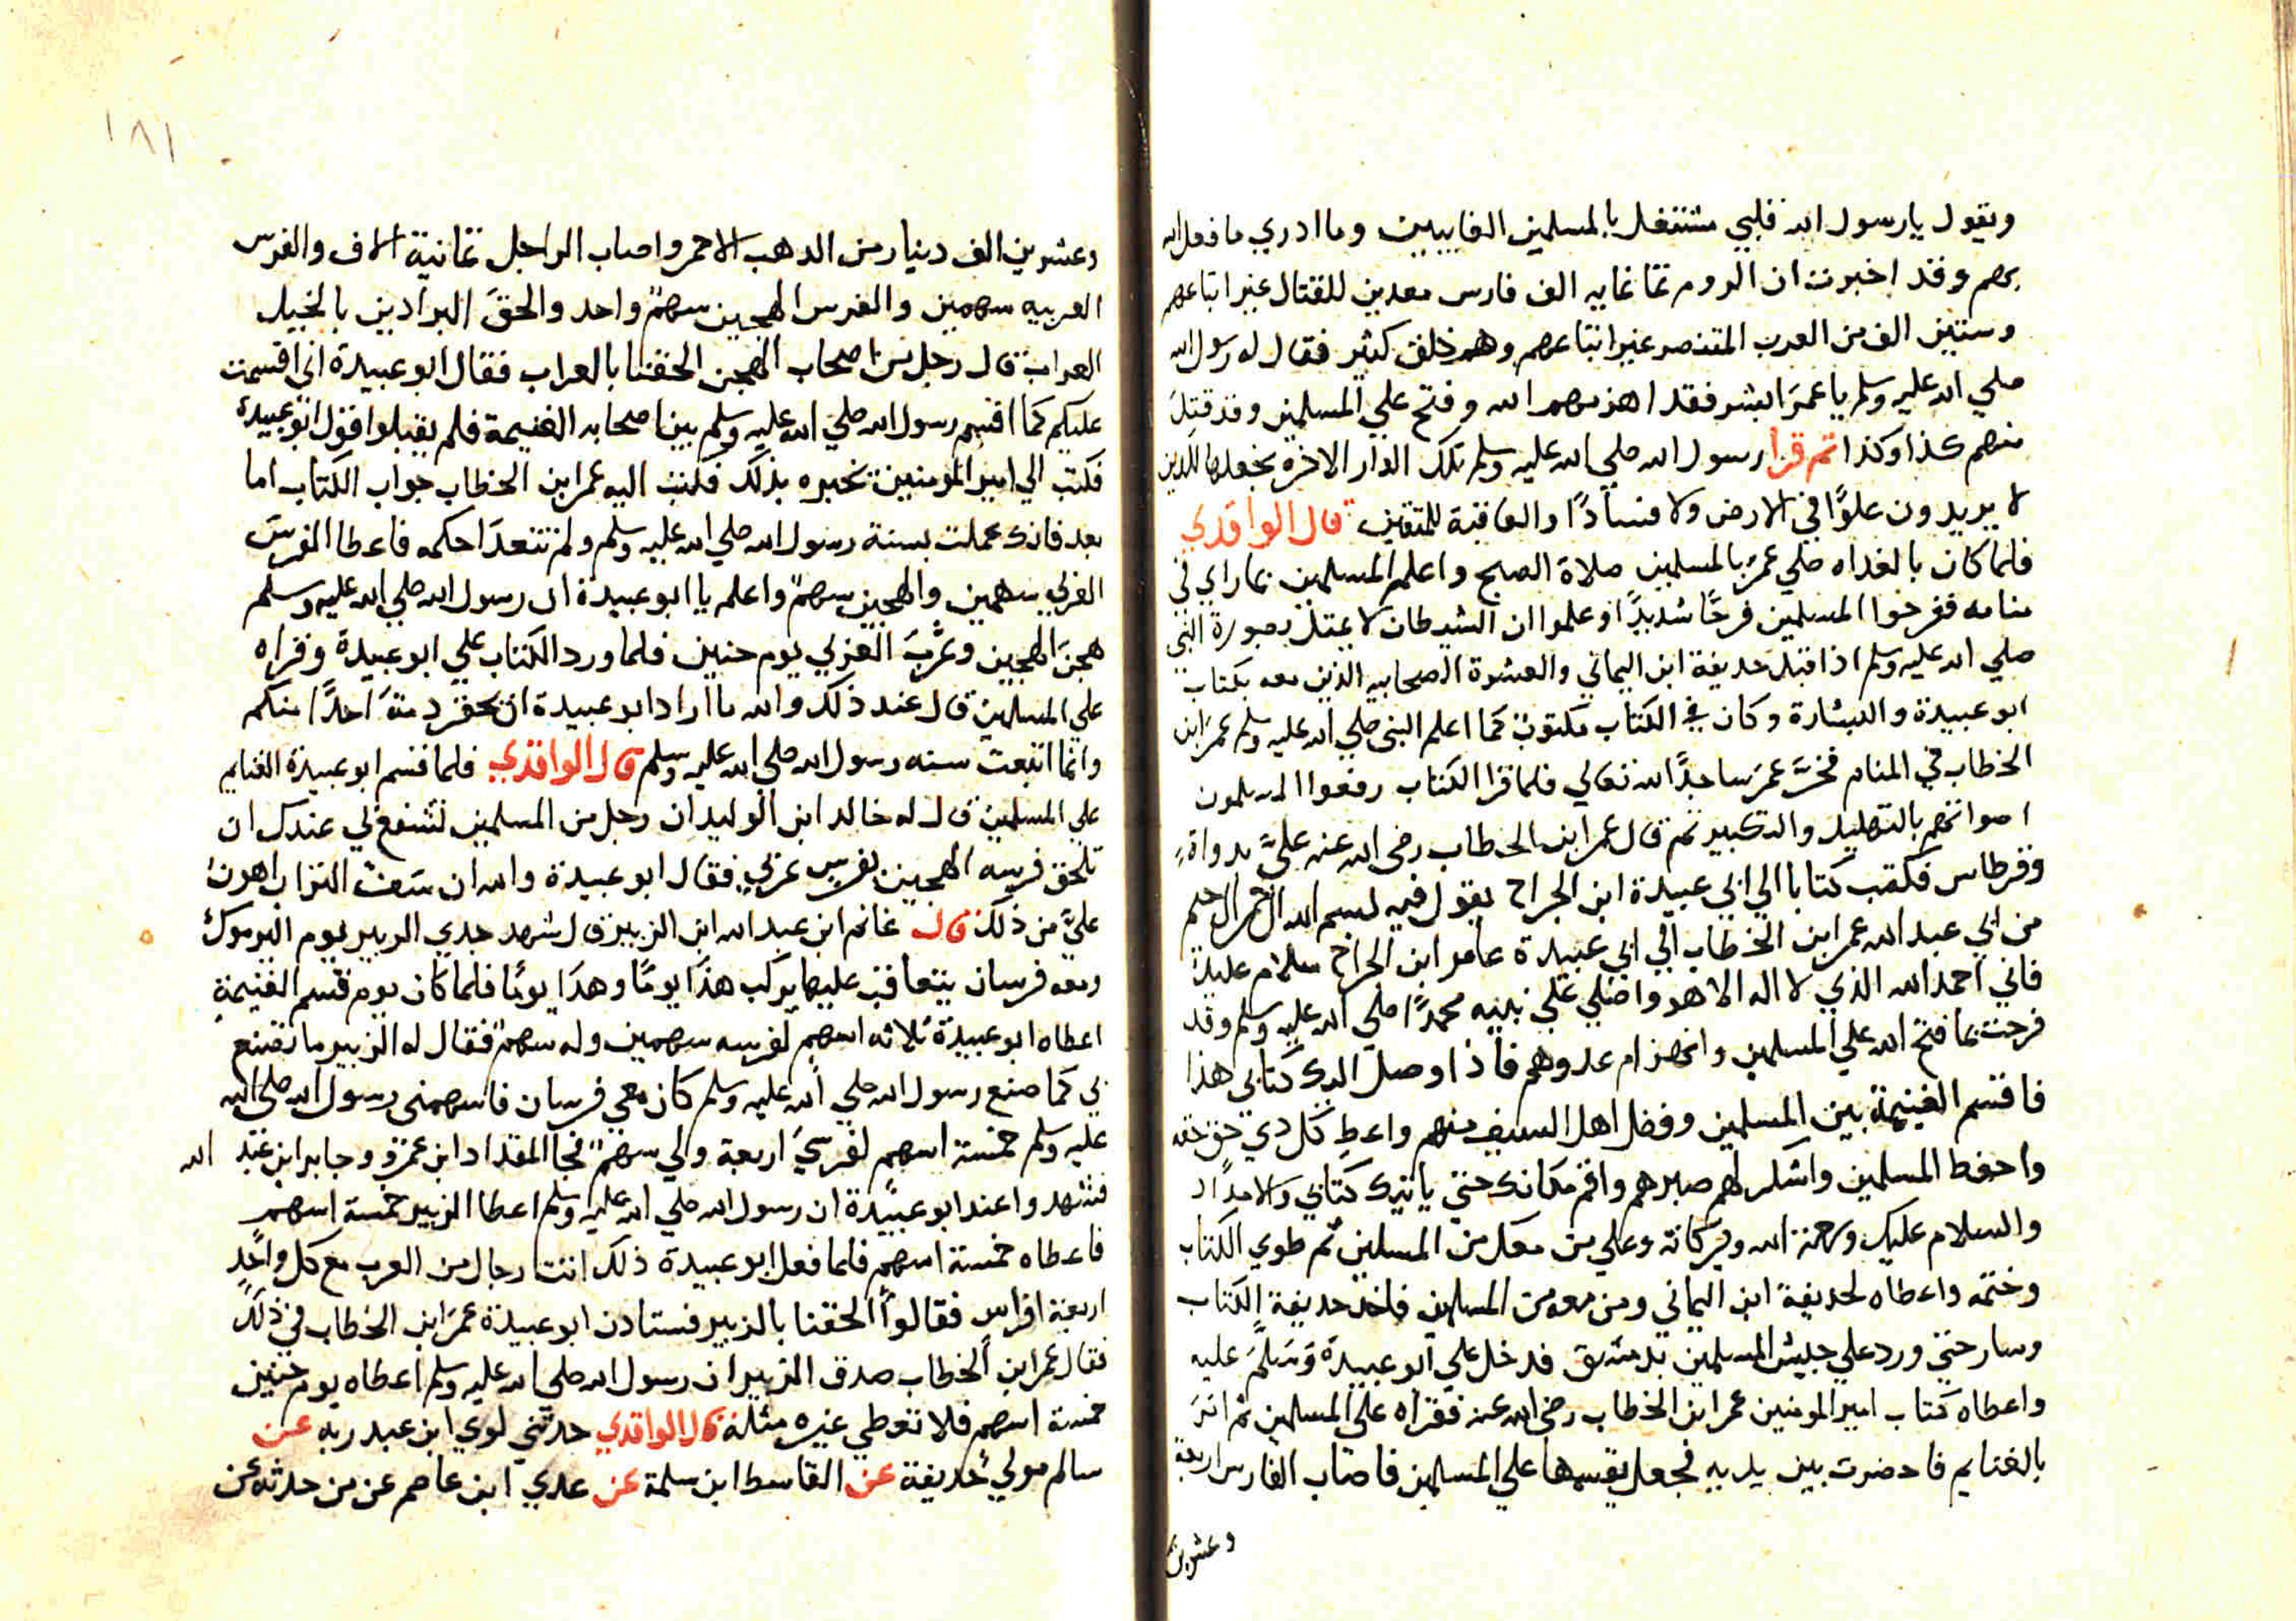 ويقول يارسول الله قلبي مشتغل بالمسلمين الغايبين وما ادري ما فعل الله
بهم وقد اخبرت ان الروم ثمانمايه الف فارس معدين للقتال غير اتباعهم
وستين الف من العرب المتنصر غير اتباعهم وهم خلق كثير فقال له رسول الله
صلي الله عليه وسلم ياعمر ابشر فقد اهزمهم الله وفتح علي المسلمين وقد قتل
منهم كذا وكذا ثم قرا رسول الله صلي الله عليه وسلم تلك الدار الاخره نجعلها للذين
لا يريدون علوًا في الارض ولا فسادًا والعاقبة للمتقين قال الواقدي
فلما كان بالغداه صلي عمر بالمسلمين صلاة الصبح واعلم المسلمين بما راي في
منامه ففرحوا المسلمين فرحًا شديدًا وعلموا ان الشيطان لا يمتثل بصورة النبي
صلي الله عليه وسلم اذا قبل حديفة ابن اليماني والعشرة الصحابيه الذين معه بكتاب
ابو عبيدة والبشارة وكان في الكتاب مكتوب كما اعلم النبي صلي الله عليه وسلم عمر ابن
الخطاب في المنام فخرَّ عمر ساجدًا لله تعالي فلما قرا الكتاب رفعوا المسلمون
اصواتهم بالتهليل والتكبير ثم قال عمر ابن الخطاب رضى الله عنه عليَّ بدواة
وقرطاس فكتب كتابا الي ابي عبيدة ابن الجراح يقول فيه بسم الله الرحمن الرحيم
من ابي عبد الله عمر ابن الخطاب الي ابي عبيدة عامر ابن الجراح سلام عليك
فاني احمد الله الذي لا اله الا هو واصلي علي نبيه محمدًا صلي الله عليه وسلم وقد
فرحت بما فتح الله علي المسلمين وانهزام عدوهم فاذا وصل اليك كتابي هذا
فاقسم الغنيمة بين المسلمين وفضل اهل السيف منهم واعط كل دي حق حقه
واحفظ المسلمين واشكر لهم صبرهم واقم مكانك حتي ياتيك كتابي
والسلام عليك ورحمة الله وبركاته وعلي من معك من المسلمين ثم طوي الكتاب
وختمه واعطاه لحديفة ابن اليماني ومن معه من المسلمين فاخذ حديفة الكتاب
وسار حتي ورد علي جيش المسلمين بدمشق فدخل علي ابو عبيدة وَسَلَّم عليه
واعطاه كتاب امير المومنين عمر ابن الخطاب رضى الله عنه فقراه علي المسلمين ثم امَرَ
بالغنايم فاحضرت بين يديه فجعل يقسمها علي المسلمين فاصاب الفارس اربعة
وعشرين
١٨١
وعشرين الف دينار من الدهب الاحمر واصاب الراجل ثمانية الاف والفرس
العربيه سهمين والفرس الهجين سهمٌ واحد والحق البرادين بالخيل
العراب قال رجل من اصحاب الهجن الحقنا بالعراب فقال ابو عبيدة اني اقسمت
عليكم كما اقسم رسول الله صلي الله عليه وسلم بين اصحابه الغنيمة فلم يقبلوا قول ابو عبيدة
فكتب الي امير المومنين يخبره بذلك فكتب اليه عمر ابن الخطاب جواب الكتاب اما
بعد فانك عملت بسنة رسول الله صلي الله عليه وسلم ولم تتعدَّ احكمه فاعطا الفرس
العربي سهمين والهجين سهمٌ واعلم يا ابو عبيدة ان رسول الله صلي الله عليه وسلم
هجن الهجين وعَرَّبَ العربي يوم حنين فلما ورد الكتاب علي ابو عبيدة وقراه
علي المسلمين قال عند ذلك والله ما اراد ابو عبيدة ان يحقر دمة احدًا منكم
وانما اتبعت سنه رسول الله صلي الله عليه وسلم قال الواقدي فلما قسم ابو عبيدة الغنايم
علي المسلمين قال له خالد ابن الوليد ان رجل من المسلمين تشفع لي عندك ان
تلحق فرسه الهجين بفرس عربي فقال ابو عبيدة والله ان سَفت التراب اهون
عليَّ من ذلك قال غانم ابن عبد الله ابن الزبير قال شهد جدي الزبير يوم اليرموك
ومعه فرسان يتعاقب عليها يركب هذا يومًا وهذا يومًا فلما كان يوم قسم الغنيمة
اعطاه ابو عبيدة ثلاثه اسهم لفرسه سهمين وله سهمٌ فقال له الزبير ما تصنع
بي كما صنع رسول الله صلي الله عليه وسلم كان معي فرسان فاسهمنى رسول الله صلى الله
عليه وسلم خمسة اسهم لفرسيَ اربعة ولي سهمٌ فجا المقداد ابن عمرو وجابر ابن عبد الله
فشهدوا عند ابو عبيدة ان رسول الله صلي الله عليه وسلم اعطا الزبير خمسة اسهم
فاعطاه خمسة اسهم فلما فعل ابو عبيدة ذلك انت رجال من العرب مع كل واحدٍ
اربعة افراس فقالوا الحقنا بالزبير فستادن ابو عبيدة عمر ابن الخطاب في ذلك
فقال عمر ابن الخطاب صدق الزبير ان رسول الله صلي الله عليه وسلم اعطاه يوم حنين
خمسة اسهم فلا تعطي غيره مثله قال الواقدي حدثني لوي ابن عبد ربه عن
سالم مولي حديفة عن القاسط ابن سلمة عن عدي ابن عاصم عن من حدثه عن